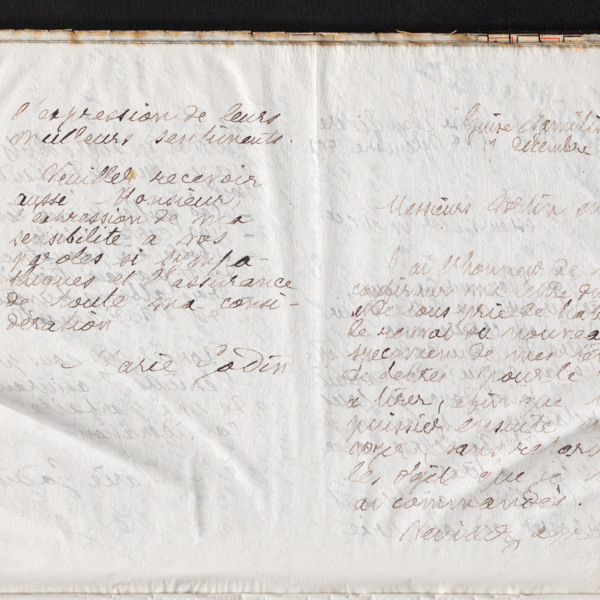 l'expression de leurs
meilleurs sentiments.
Veuillez recevoir
aussi Monsieur,
l'expression de ma
sensibilité à vos
paroles si sympa-
thiques et l'assurance
de toute ma consi-
dération
Marie Godin
Guise Familis
17 décembre
Messieurs
J'ai l'honneur de
confirmer ma lettre du
et de vous prie de
le renvoi du nouveau
specimen de mes
de lettres pour le
à tirer, afin que
puissiez ensuite
sans retard
les objets que je
ai commandés.